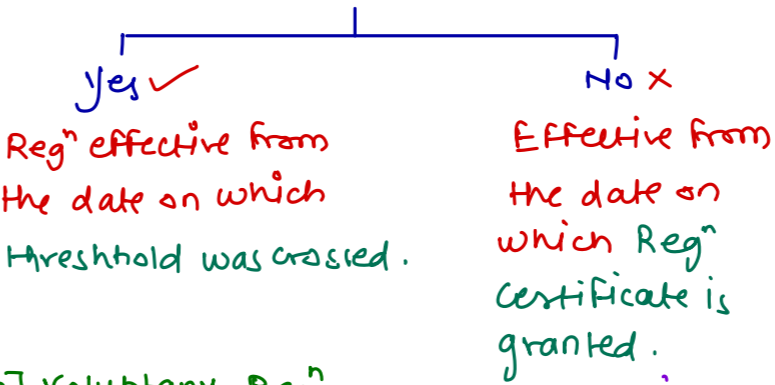 Yes ✓
No ✗
Regⁿ effective from
the date on which
threshhold was crossed.
Effective from
the date on
which Regⁿ
certificate is
granted.
] Voluntary Regⁿ